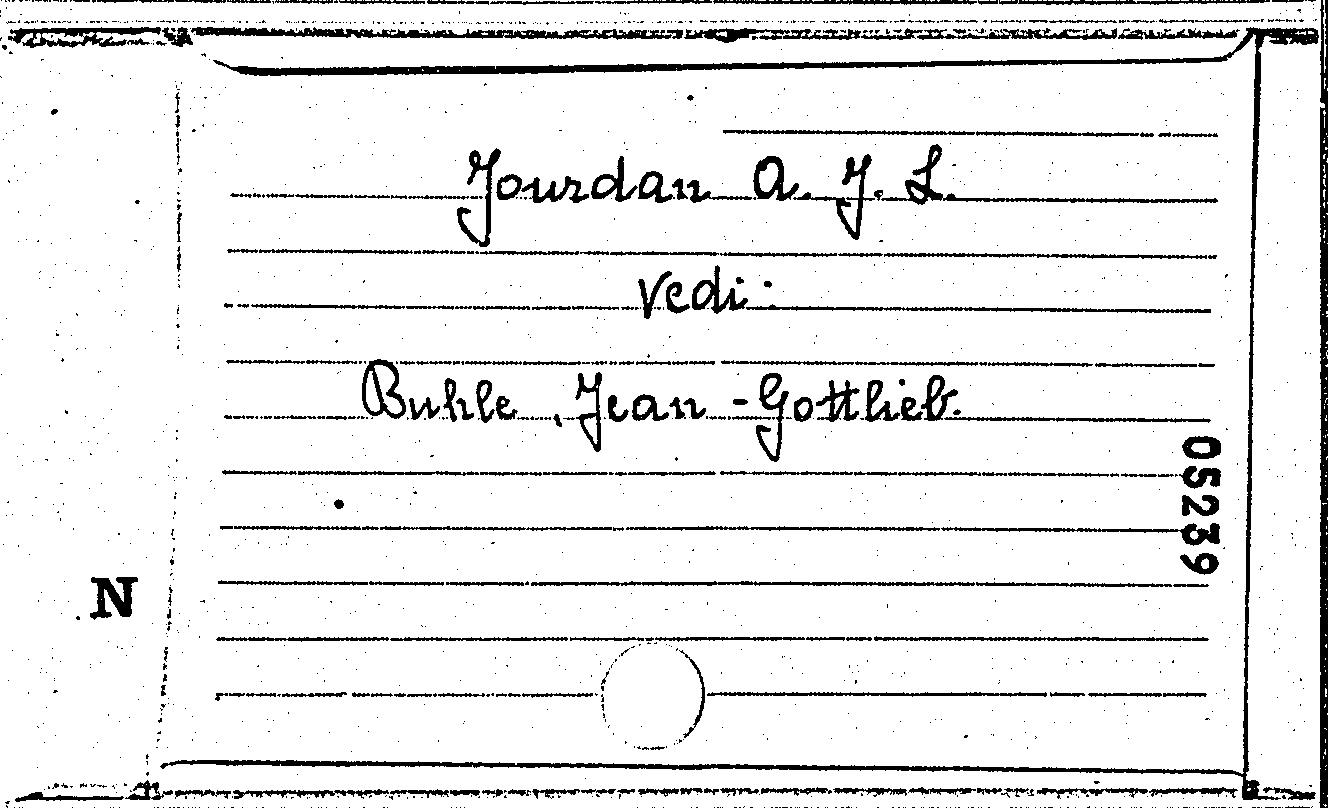 Jourdan A. J. L.
Vedi:
Buhle, Jean-Gottlieb.
05239
N